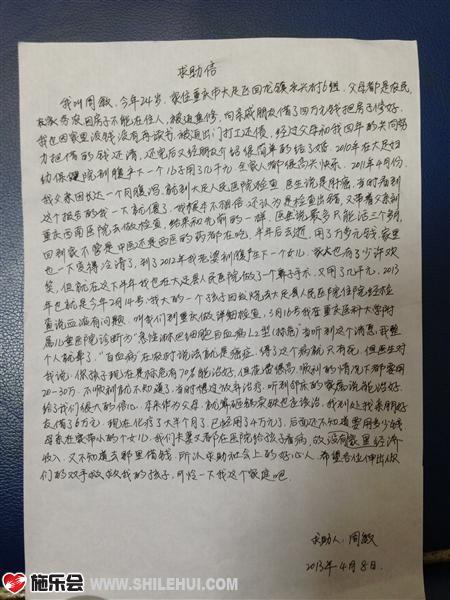 求助信
我叫周敏,今年24岁,家住重庆市大足区回龙镇永兴村6组,父母都是农民,
因房子不能在住人,被迫直修,向亲戚朋友借了四万元钱把房子修好,
我也因家里没钱没有再读书,被迫出门打工还债,经过父母和我四年的共同努
力把借的钱还清,还完后又经朋友介绍很简单的结了婚。2010年在大足妇
幼保健院剖腹产下一个儿子用了几千元,全家人都很高兴快乐。2011年4月份,
我父亲因长达一个月腹泻,就到大足人民医院检查,医生说是肝癌,当时看到
这个报告的我一下就傻了,我根本不相信,还认为是检查出错,又带着父亲到
重庆西南医院去做检查,结果和先前的一样。医生说最多只能活三个多月,
回到家不管是中医还是西医的药都在吃,半年后去逝,用了万多元钱,家里
也一下变得冷清了,到了2012年我老婆剖腹产生下一个女儿,家人也有了少许欢
笑,但就在这下半年我也在大足县人民医院做了一个鼻子手术,又用了几千元,2013
年也就是今年2月14号,我大的一个孩子因发烧在大足县人民医院住院,经检
查说血液有问题,叫我们到重庆做详细检查,3月16号我在重庆医科大学附
属儿童医院诊断为"急性淋巴细胞白血病L2型(标危)当听到这个消息,我整
个人就晕了,"白血病"在农村说法就是癌症,得了这个病就只有死,但医生对
我说,你孩子现在是标危有70%能治好,但花费很高,顺利的情况下都要用
20-30万,不顺利就不知道了,当时想过放弃治疗,听到邻床的家属说能治好,
给了我们很大的信心,本来作为父母,就算砸锅卖铁也应该治,我到处找亲朋好
友借了6万元,现在化疗了大半个月了,已经用了4万元了,后面还不知道要用多少钱,
母亲在家带小的个女儿,我们夫妻2都在医院给孩子看病,故没有家里经济
收入,又不知道去那里借钱,所以求助社会上的好心人,希望各位伸出你
们的双手救救我的孩子,可怜一下我这个家庭吧。
求助人:周敏
2013年4月8日.
施乐会 WWW.SHILEHUI.COM